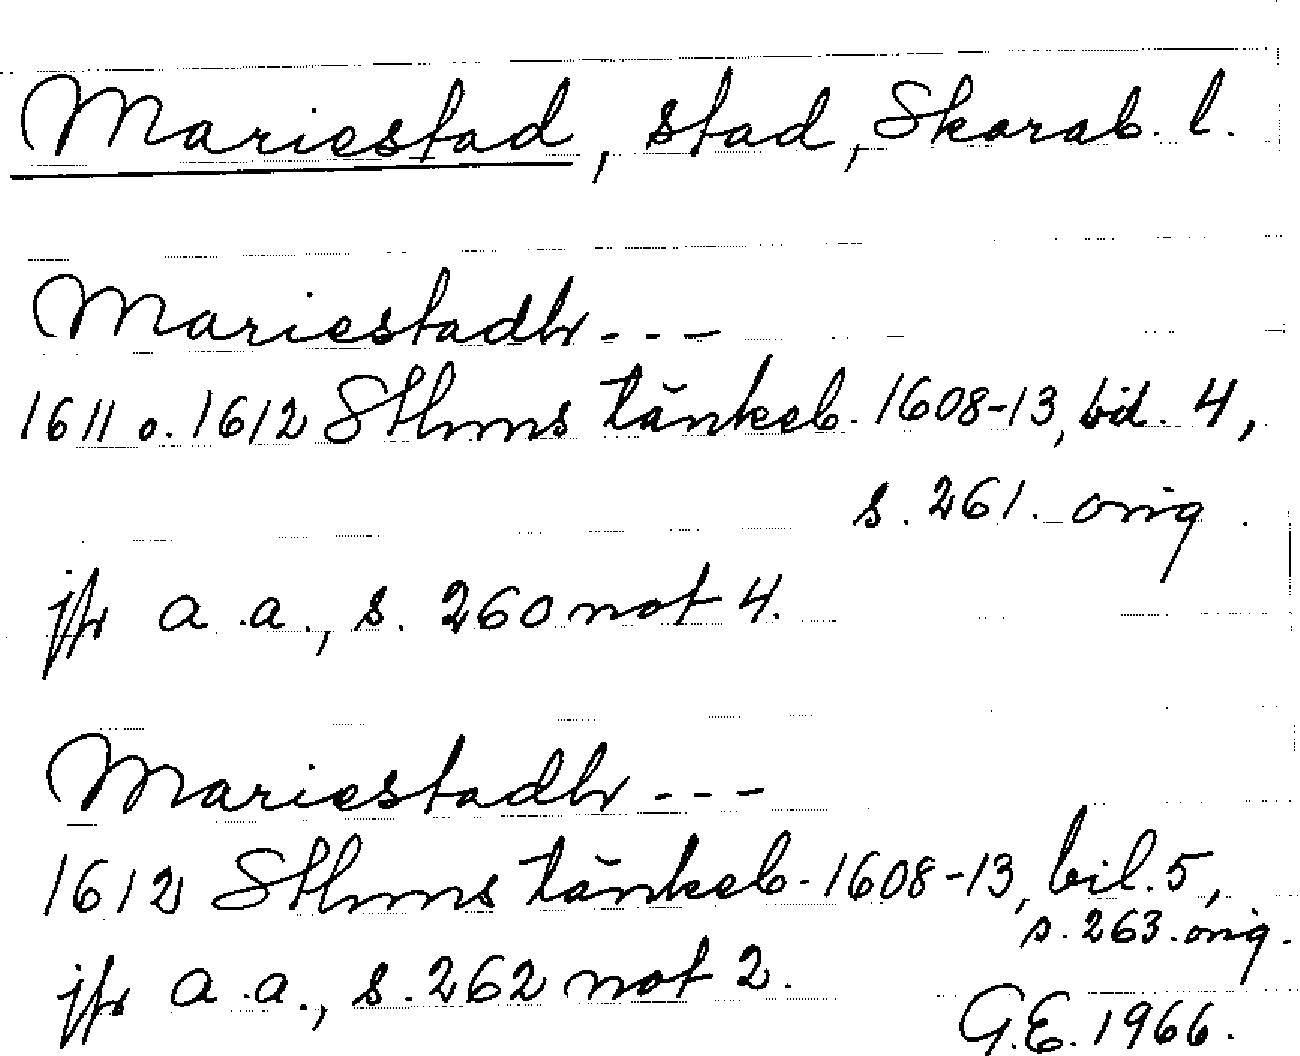 Mariestad, stad, Skarab. l.
Mariestadh - - -
1611 o. 1612 Sthms tänkeb. 1608-13, bil. 4,
s. 261. orig.
jfr a.a., s. 260 not 4.
Mariestadh - - -
1612 Sthms tänkeb. 1608-13, bil. 5,
s. 263. orig.
jfr a.a., s. 262 not 2.
G.E. 1966.